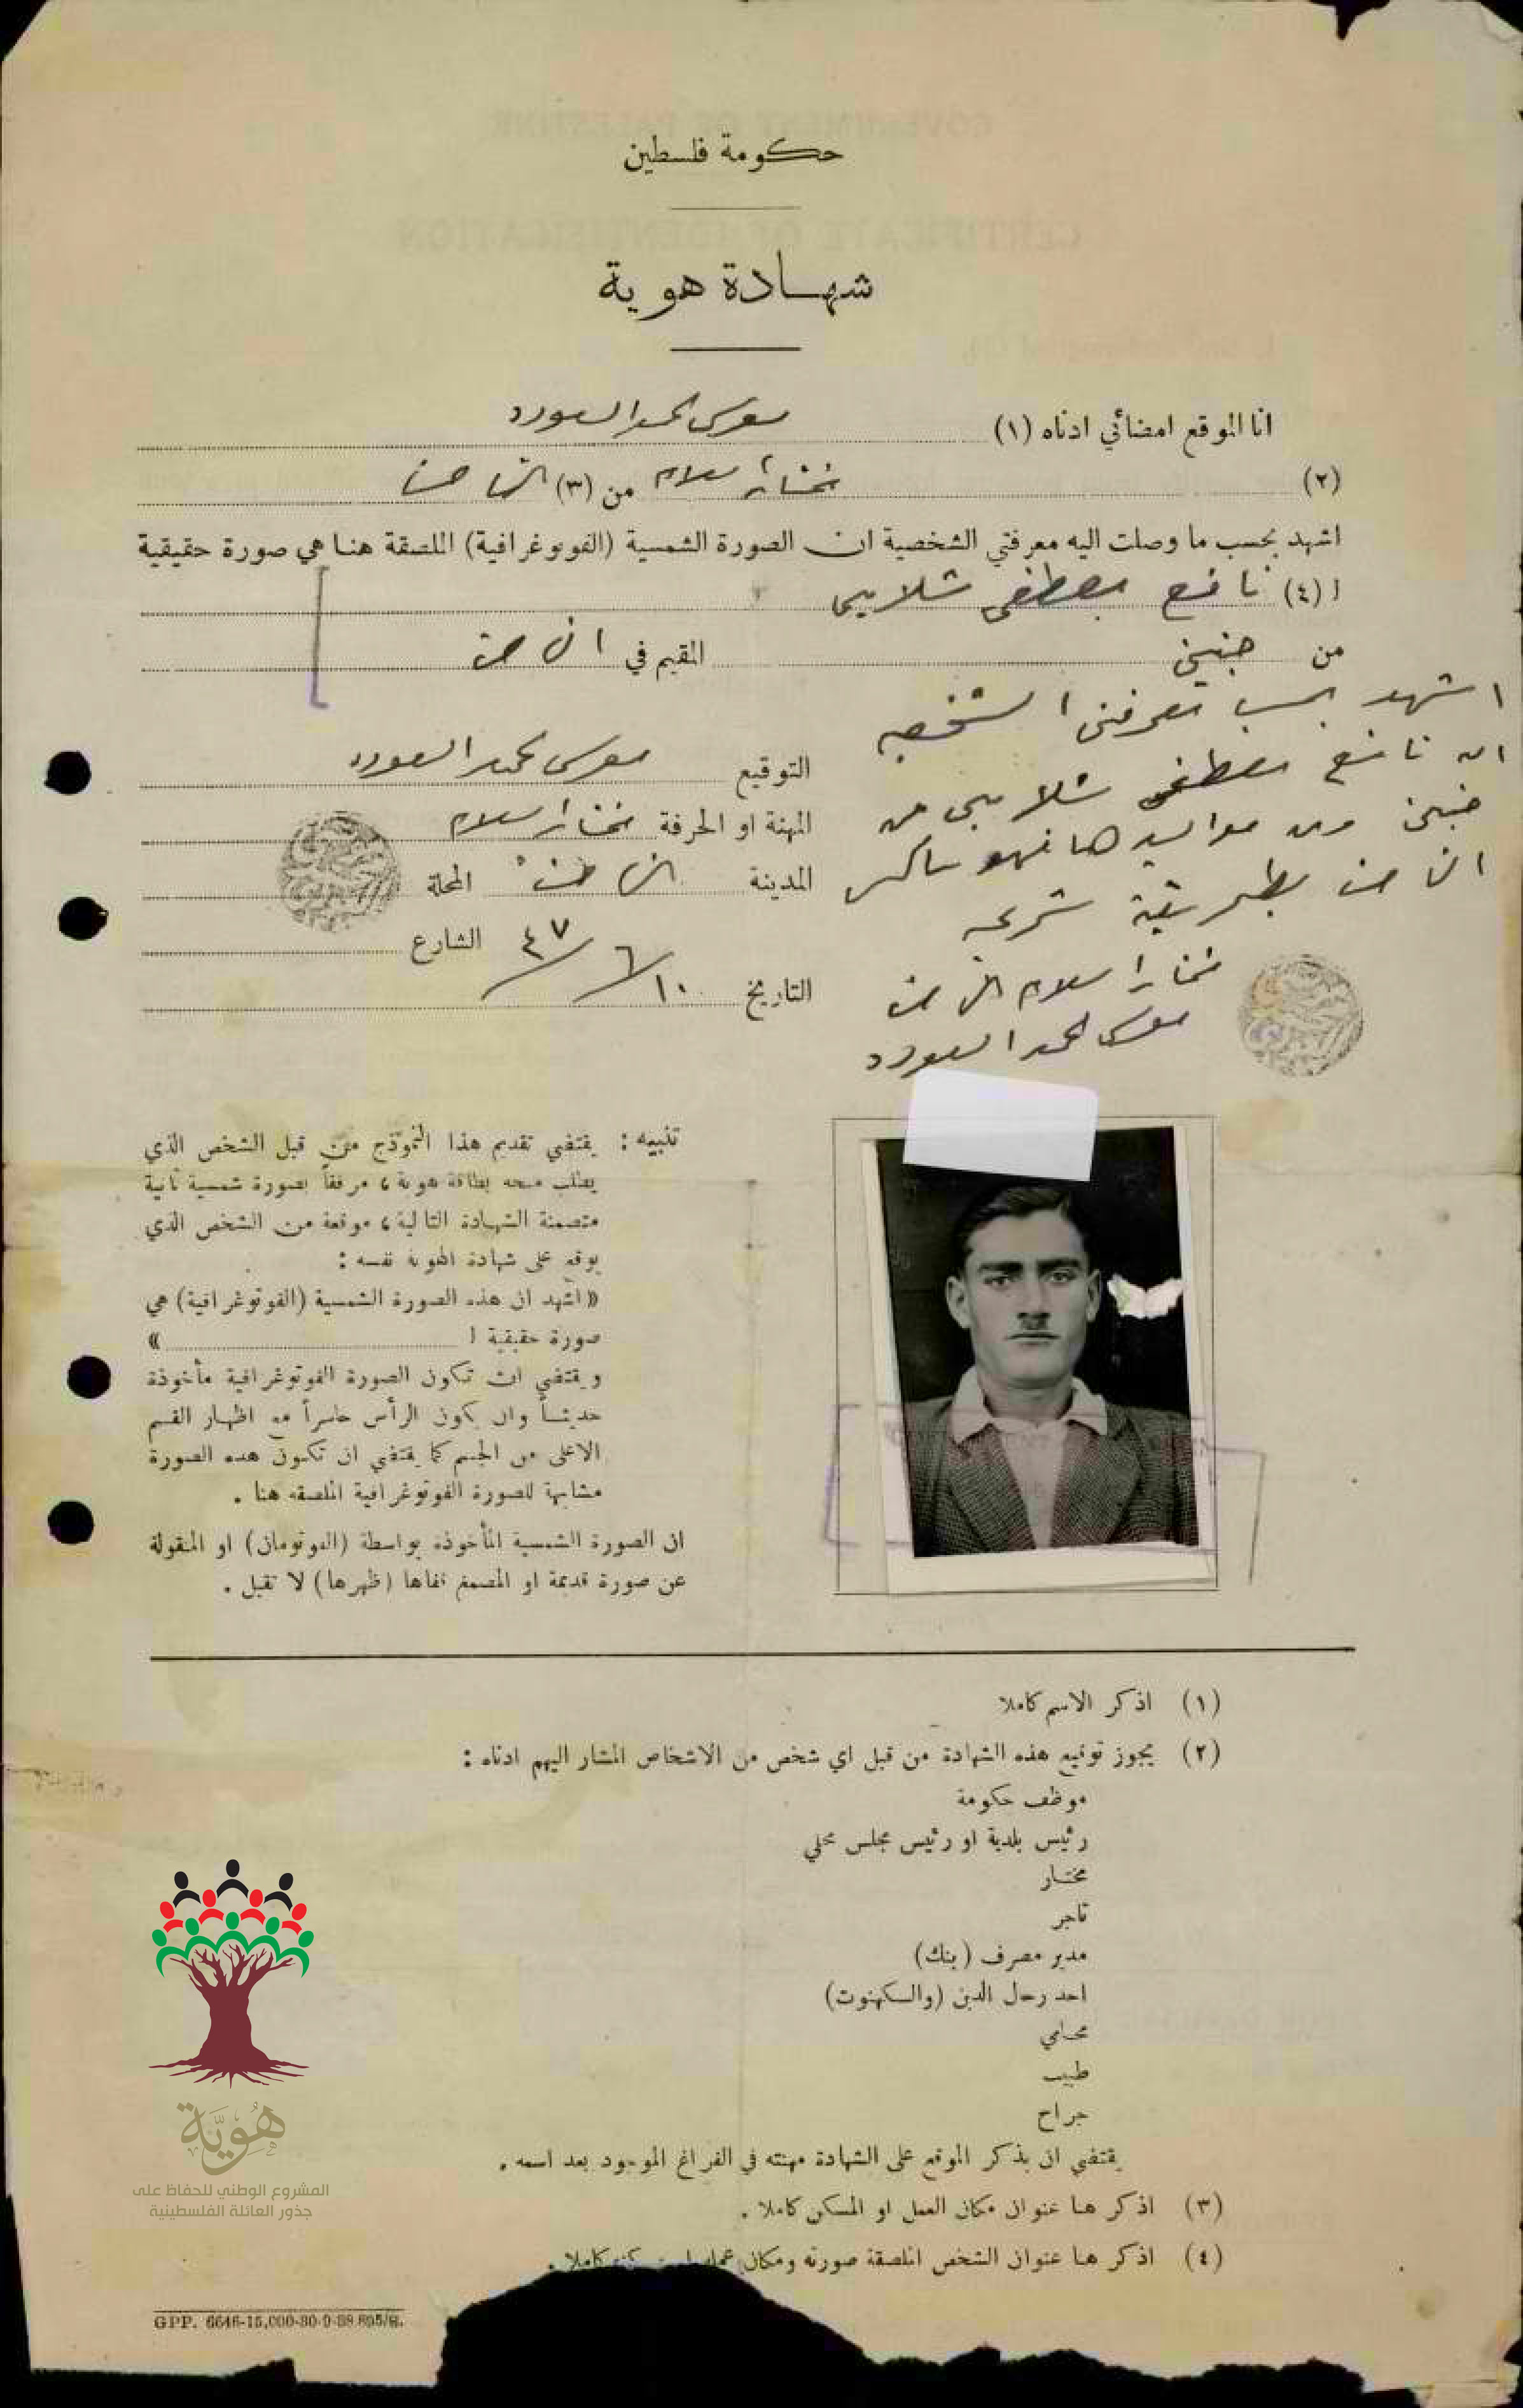 حكومة فلسطين
شهادة هوية
انا الموقع امضائي ادناه (١) موسى المحمد السعود
(٢) مختار اسلام من (٣) الناصرة
اشهد بحسب ما وصلت اليه معرفتي الشخصية ان الصورة الشمسية (الفوتوغرافية) الملصقة هنا هي صورة حقيقية
ا (٤) نافع مصطفى شلابي
من جنين المقيم في الناصرة
اشهد بحسب معرفتي الشخصيه
ان نافع مصطفى شلابي من
جنين ومن مواليدها فهو ساكن
الناصرة بطريقة شرعيه
مختار اسلام الناصرة
موسى المحمد السعود
التوقيع موسى المحمد السعود
المهنة او الحرفة مختار اسلام
المدينة الناصرة المحلة
الشارع
التاريخ ١٠/٦/٤٧
تنبيه: يقتضي تقديم هذا النموذج من قبل الشخص الذي
يطلب منحه بطاقة هوية، مرفقاً بصورة شمسية ثانية
متضمنة الشهادة التالية، موقعة من الشخص الذي
يوقع على شهادة الهوية نفسه:
«اشهد ان هذه الصورة الشمسية (الفوتوغرافية) هي
صورة حقيقية ا »
ويقتضي ان تكون الصورة الفوتوغرافية مأخوذة
حديثاً وان يكون الرأس حاسراً مع اظهار القسم
الاعلى من الجسم كما يقتضي ان تكون هذه الصورة
مشابهة للصورة الفوتوغرافية الملصقه هنا.
ان الصورة الشمسية المأخوذه بواسطة (الفوتومان) او المنقولة
عن صورة قديمة او المصمغ قفاها (ظهرها) لا تقبل.
(١) اذكر الاسم كاملا
(٢) يجوز توقيع هذه الشهادة من قبل اي شخص من الاشخاص المشار اليهم ادناه:
موظف حكومة
رئيس بلدية او رئيس مجلس محلي
مختار
تاجر
مدير مصرف (بنك)
احد رجال الدين (والكهنوت)
محامي
طبيب
جراح
يقتضي ان يذكر الموقع على الشهادة مهنته في الفراغ الموجود بعد اسمه.
(٣) اذكر هنا عنوان مكان العمل او المسكن كاملا.
(٤) اذكر هنا عنوان الشخص الملصقة صورته ومكان عمله كاملا.
GPP. 6646-15,000-30-9-38
هُوِيَّة
المشروع الوطني للحفاظ على
جذور العائلة الفلسطينية